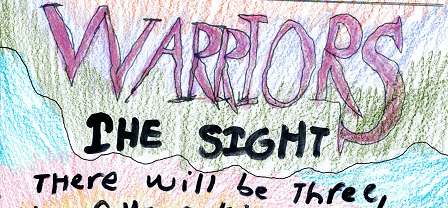 WARRIORS
THE SIGHT
THere will be THree,